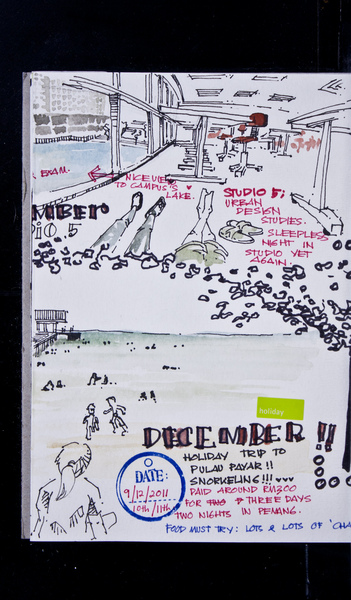 BEAM.
NICE VIEW
TO CAMPUS'S
LAKE.
STUDIO 5;
URBAN
DESIGN
STUDIES.
SLEEPLESS
NIGHT IN
STUDIO YET
AGAIN.
MBER
DIO 5
holiday
DECEMBER !!
HOLIDAY TRIP TO
PULAU PAYAR !!
SNORKELING!!!
PAID AROUND RM300
FOR THREE DAYS
TWO NIGHTS IN PENANG.
DATE:
9/12/2011
10th/11th
FOOD MUST TRY: LOTS & LOTS OF 'CHA